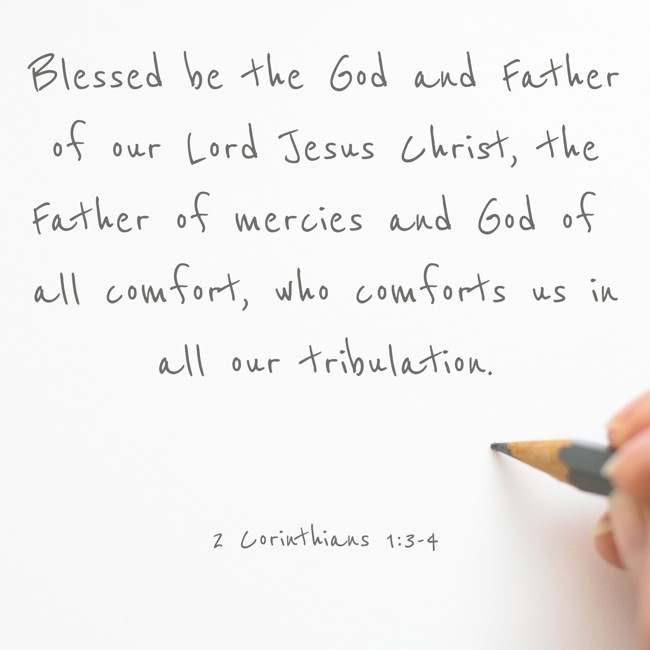 Blessed be the God and Father
of our Lord Jesus Christ, the
Father of mercies and God of
all comfort, who comforts us in
all our tribulation.
2 Corinthians 1:3-4